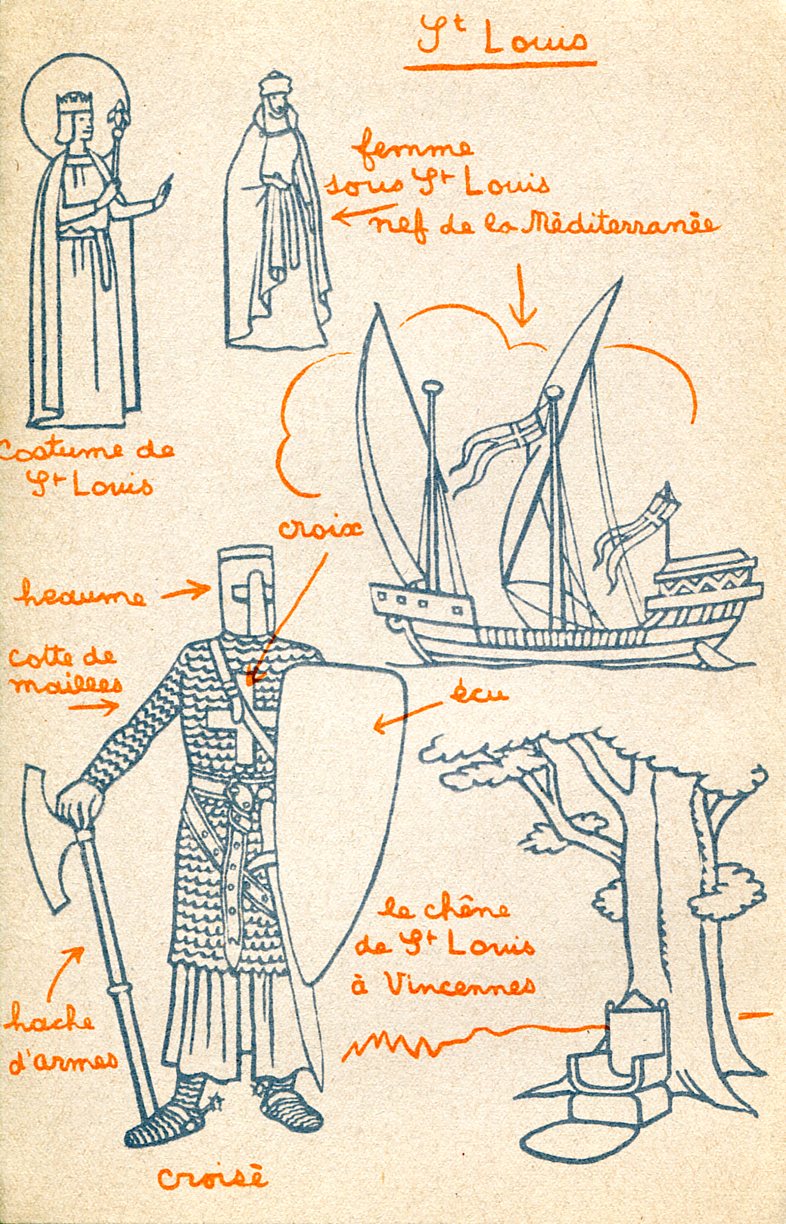 St Louis
femme
sous St Louis
nef de la Méditerranée
costume de
St Louis
croix
heaume
cotte de
mailles
écu
le chêne
de St Louis
à Vincennes
hache
d'armes
croisé